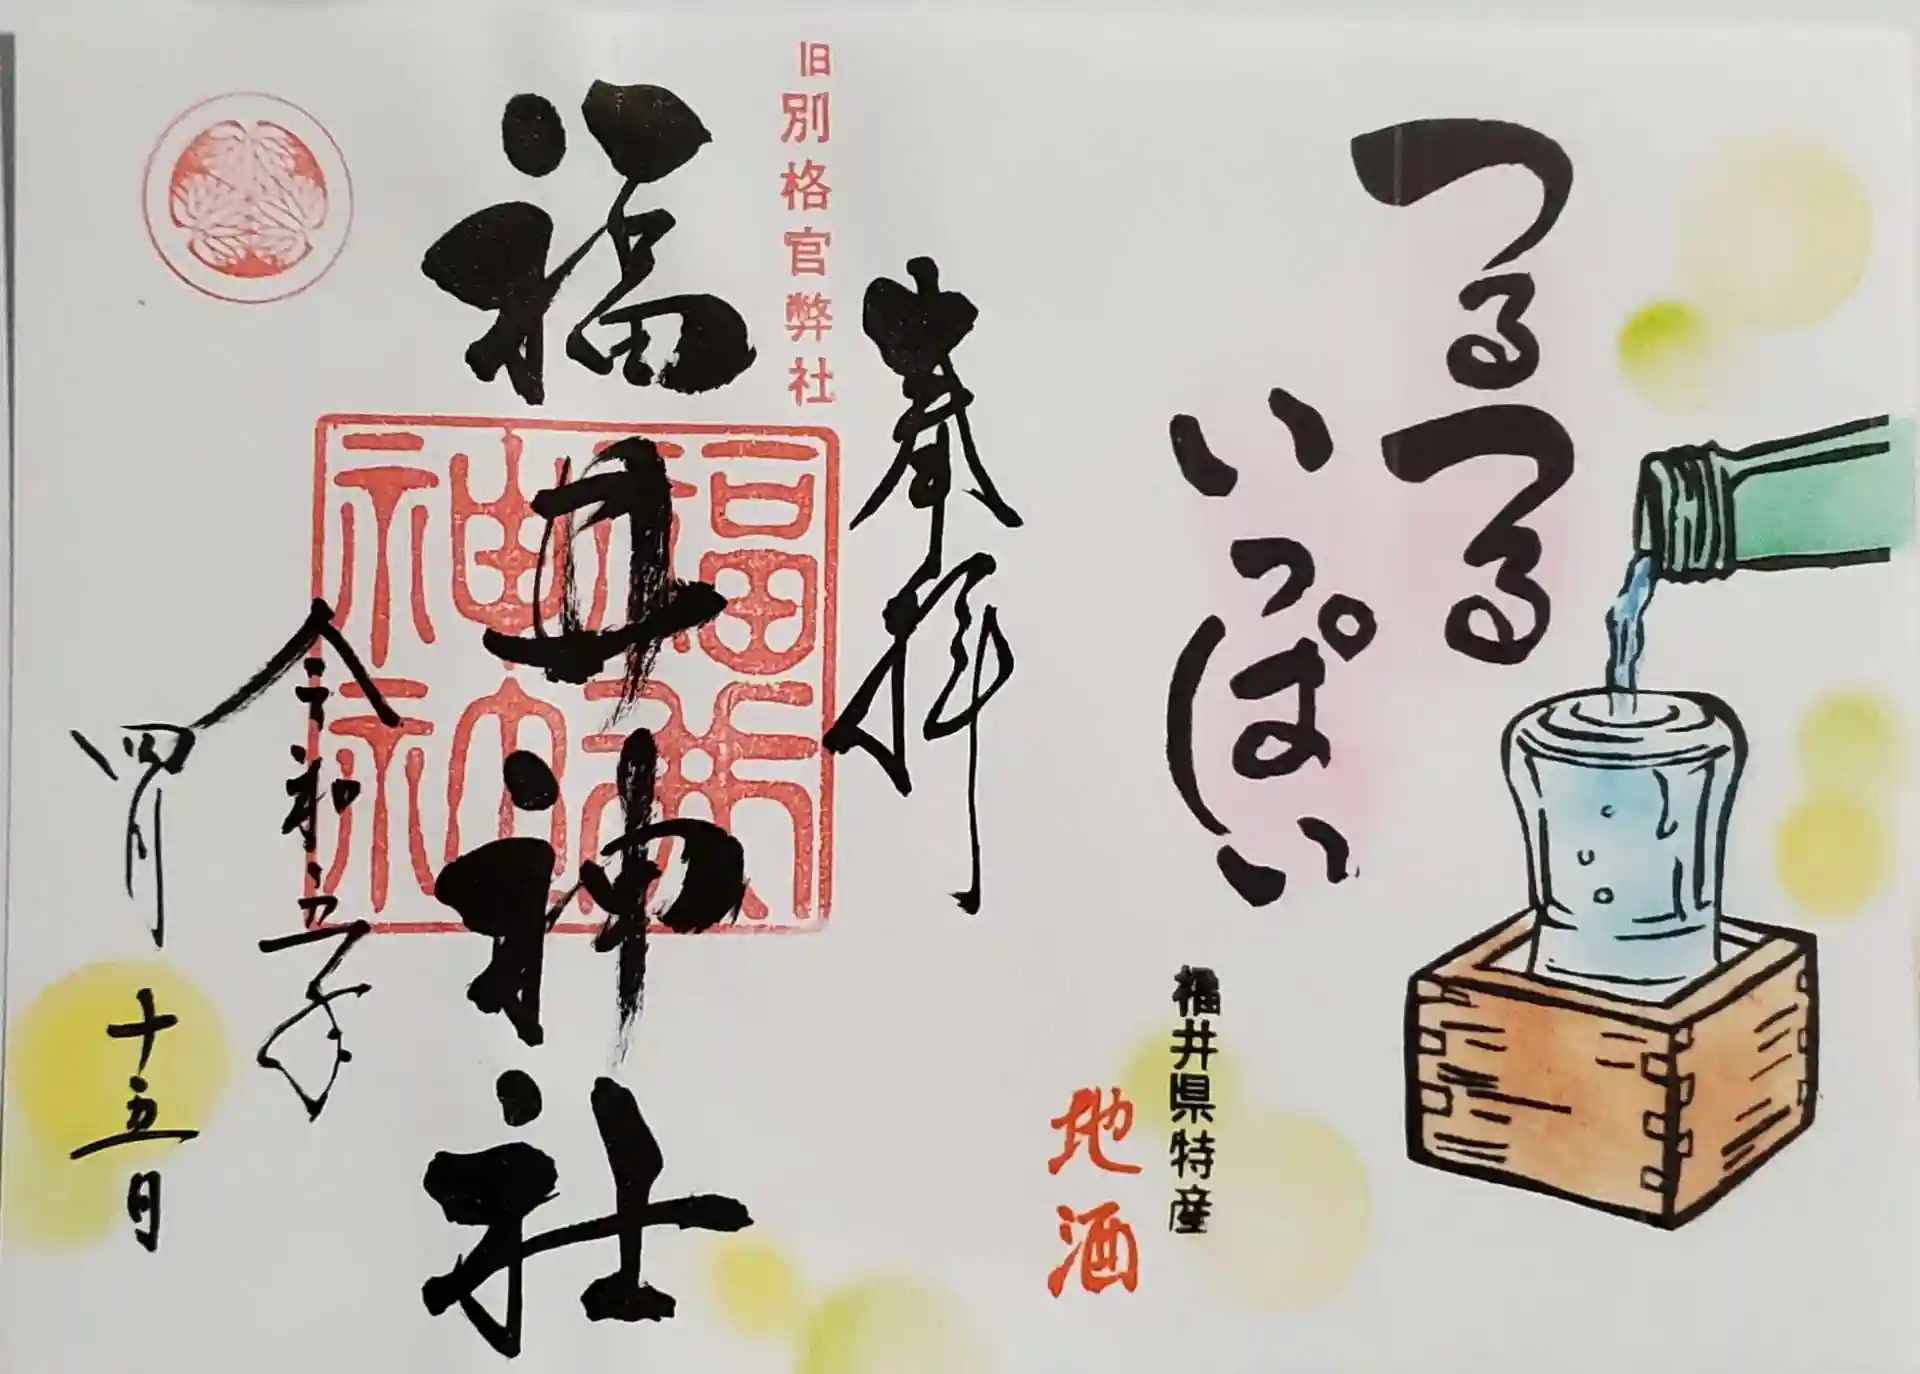 つるつる
いっぱい
福井県特産
地酒
奉拝
旧別格官弊社
福井神社
令和五年
四月十五日